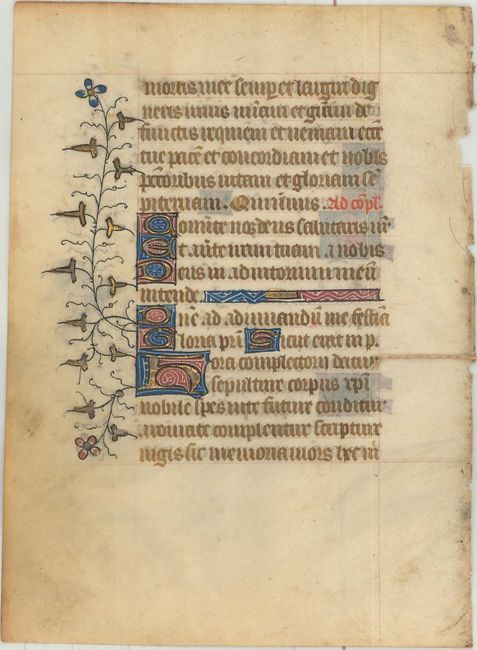 mortis mee semp et largiri dig
neris vivis miam et gram de
functis requiem et veniam eccie
tue pacē et concordiam et nobis
pctoribus vitam et gloriam sē
piternam. Qui vivis. Ad cōpl.
Convte nos deus salutaris nr
Et avte iram tuam a nobis
Deus in adiutorium meū
intende
Dne ad adiuvandū me festīa
Gloria pri Sicut erat in p.
Hora completorii datur
sepulture corpus xpi
nobile spes vite future conditur
aromate complentur scripture
iugis sit memoria mors hec m